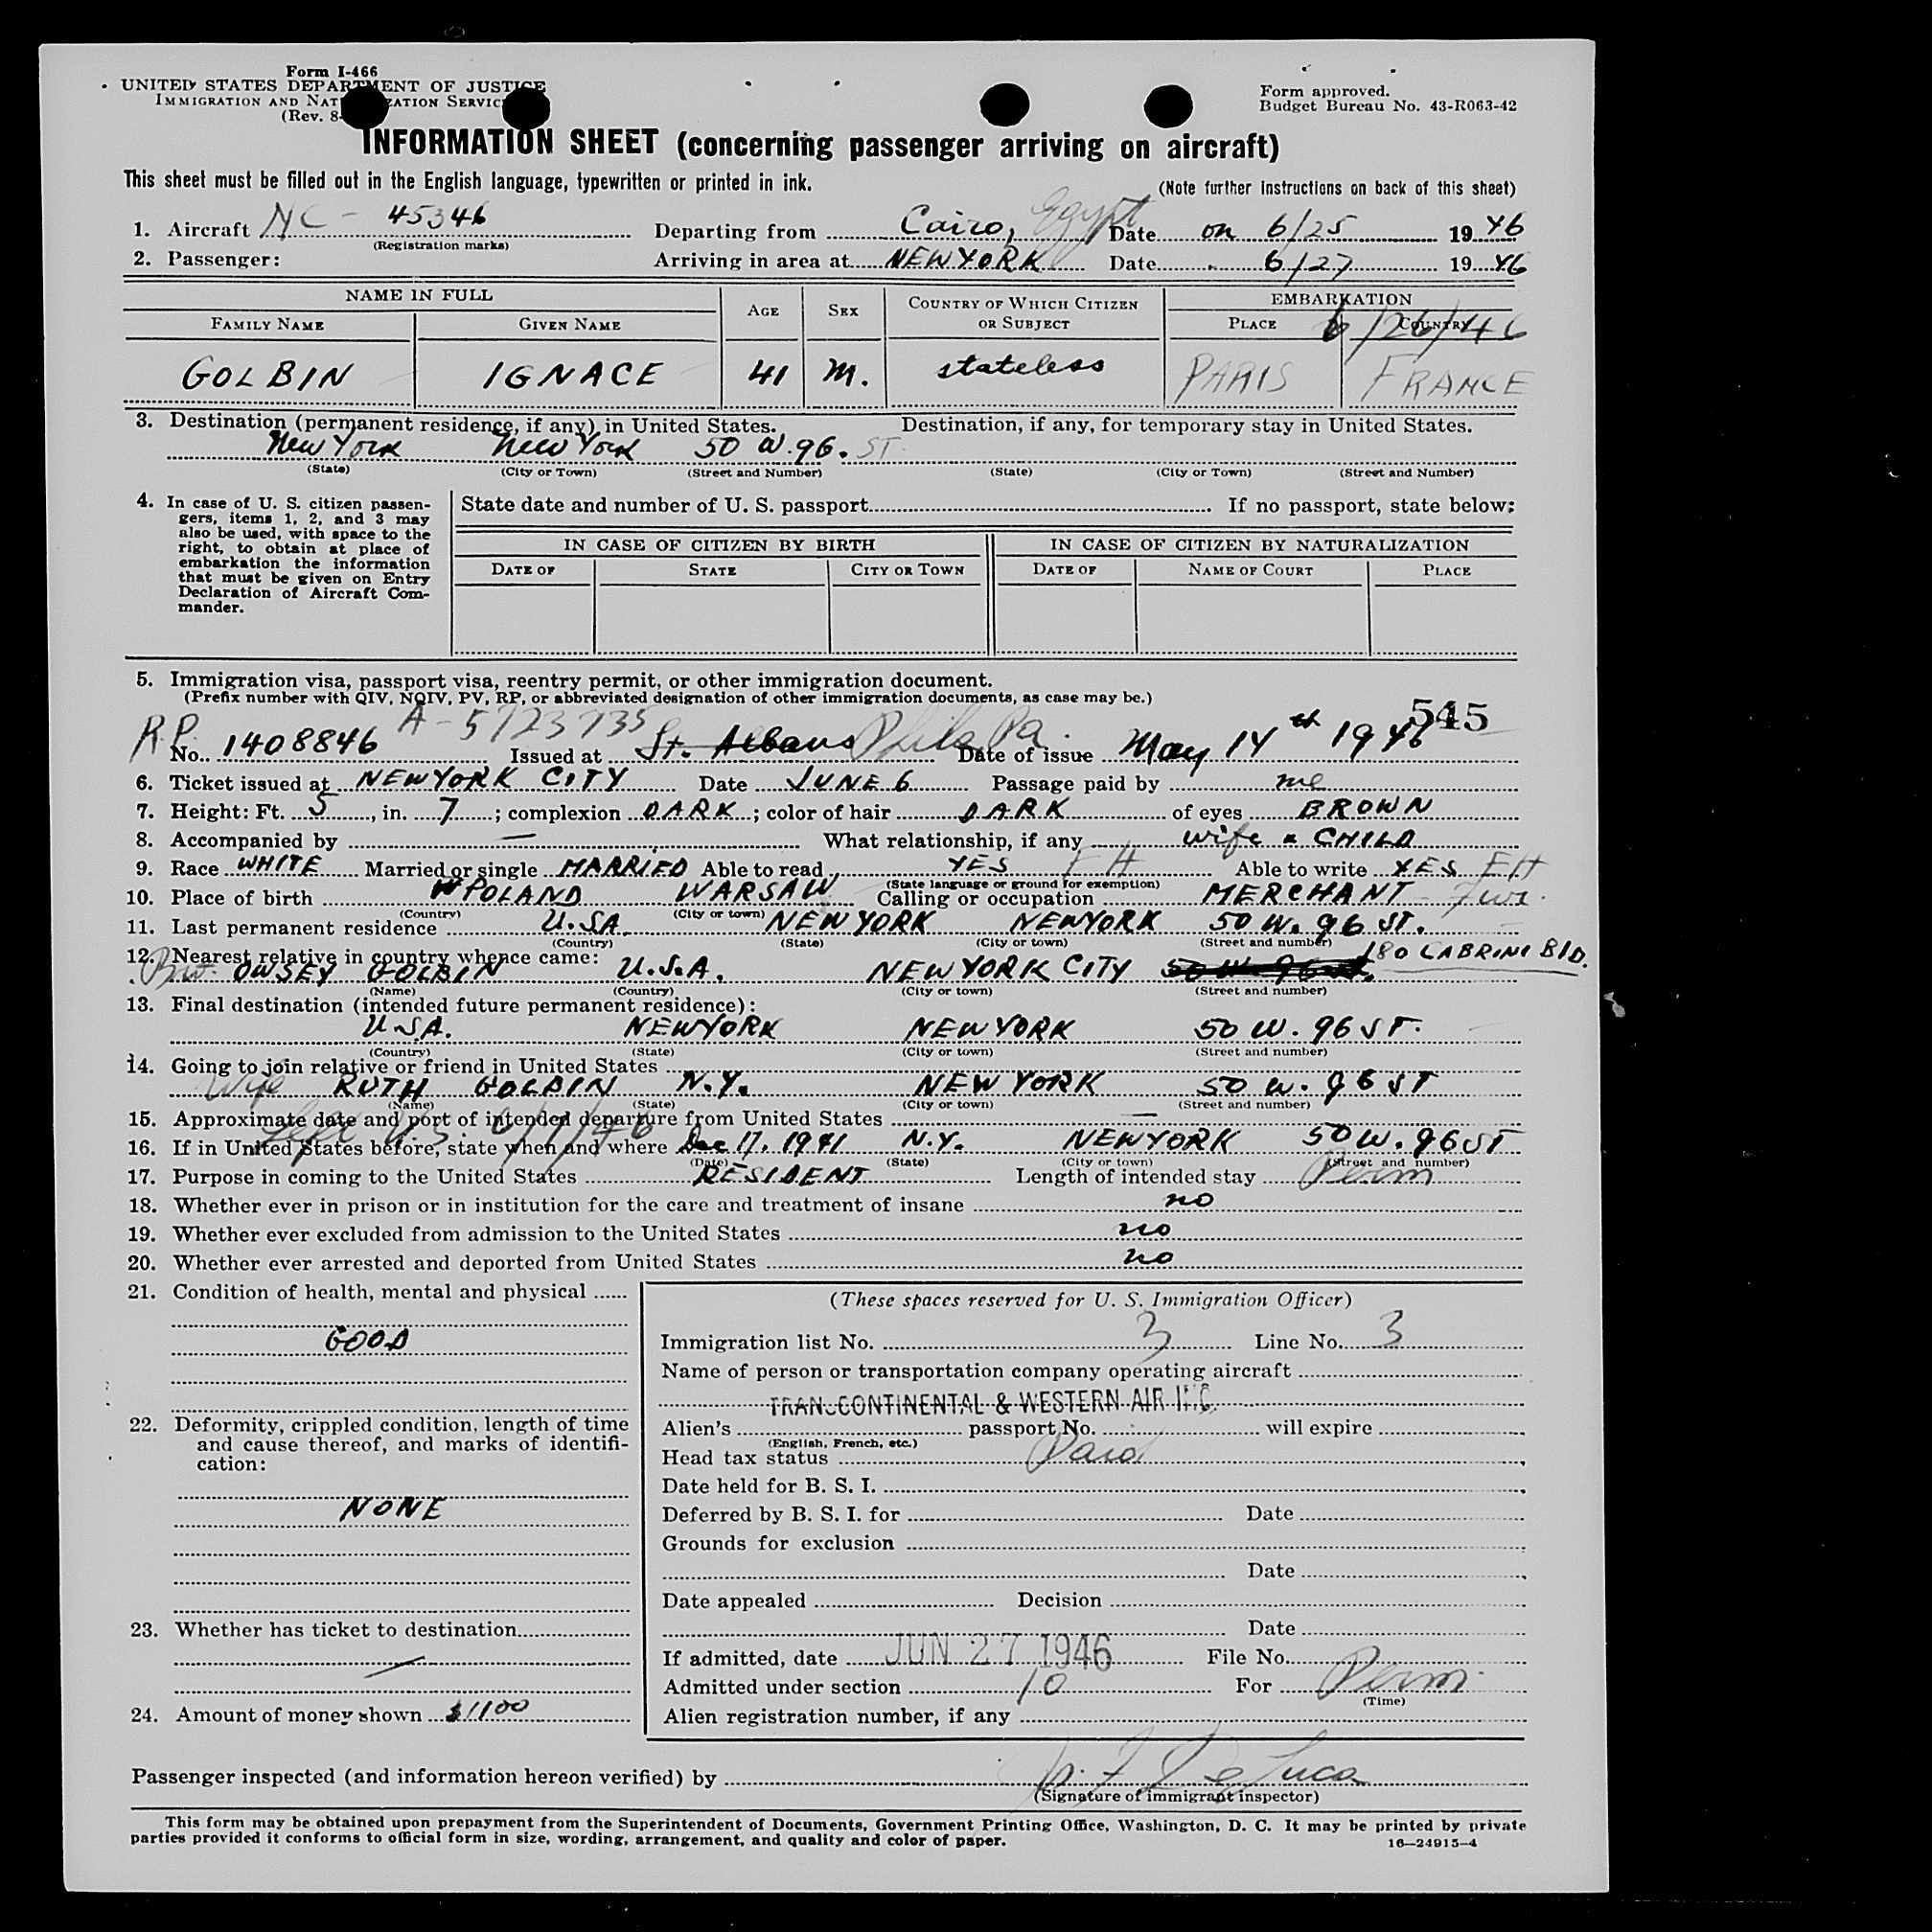 Form I-466
UNITED STATES DEPARTMENT OF JUSTICE
IMMIGRATION AND NATURALIZATION SERVICE
(Rev. 8-
Form approved.
Budget Bureau No. 43-R063-42
INFORMATION SHEET (concerning passenger arriving on aircraft)
This sheet must be filled out in the English language, typewritten or printed in ink.
(Note further instructions on back of this sheet)
1. Aircraft NC - 45346 Departing from Cairo, Egypt Date on 6/25 1946
(Registration marks)
2. Passenger: Arriving in area at NEW YORK Date 6/27 1946
NAME IN FULL AGE SEX COUNTRY OF WHICH CITIZEN OR SUBJECT EMBARKATION
FAMILY NAME GIVEN NAME PLACE COUNTRY
6/26/46
GOLBIN IGNACE 41 M. stateless PARIS FRANCE
3. Destination (permanent residence, if any) in United States. Destination, if any, for temporary stay in United States.
New York New York 50 W. 96. ST.
(State) (City or Town) (Street and Number) (State) (City or Town) (Street and Number)
4. In case of U. S. citizen passen-
gers, items 1, 2, and 3 may
also be used, with space to the
right, to obtain at place of
embarkation the information
that must be given on Entry
Declaration of Aircraft Com-
mander.
State date and number of U. S. passport If no passport, state below:
IN CASE OF CITIZEN BY BIRTH IN CASE OF CITIZEN BY NATURALIZATION
DATE OF STATE CITY OR TOWN DATE OF NAME OF COURT PLACE
5. Immigration visa, passport visa, reentry permit, or other immigration document.
(Prefix number with QIV, NQIV, PV, RP, or abbreviated designation of other immigration documents, as case may be.)
545
A-5723735
R.P. No. 1408846 Issued at St. Albans Phila Pa. Date of issue May 14th 1946
6. Ticket issued at NEW YORK CITY Date JUNE 6 Passage paid by me
7. Height: Ft. 5, in. 7; complexion DARK; color of hair DARK of eyes BROWN
8. Accompanied by — What relationship, if any wife & CHILD
9. Race WHITE Married or single MARRIED Able to read YES EH Able to write YES EH
(State language or ground for exemption)
10. Place of birth POLAND WARSAW Calling or occupation MERCHANT - Furs.
(Country) (City or town)
11. Last permanent residence U.S.A. NEW YORK NEW YORK 50 W. 96 ST.
(Country) (State) (City or town) (Street and number)
12. Nearest relative in country whence came: 180 CABRINI BLD.
OWSEY GOLBIN U.S.A. NEW YORK CITY 50 W. 96 st.
(Name) (Country) (City or town) (Street and number)
13. Final destination (intended future permanent residence):
U.S.A. NEW YORK NEW YORK 50 W. 96 ST.
(Country) (State) (City or town) (Street and number)
14. Going to join relative or friend in United States
Wife RUTH GOLBIN N.Y. NEW YORK 50 W. 96 ST
(Name) (State) (City or town) (Street and number)
15. Approximate date and port of intended departure from United States —
Left U.S.
16. If in United States before, state when and where Dec 17. 1941 N.Y. NEW YORK 50 W. 96 ST
(Date) (State) (City or town) (Street and number)
17. Purpose in coming to the United States RESIDENT Length of intended stay Perm
18. Whether ever in prison or in institution for the care and treatment of insane no
19. Whether ever excluded from admission to the United States no
20. Whether ever arrested and deported from United States no
21. Condition of health, mental and physical
GOOD
22. Deformity, crippled condition, length of time
and cause thereof, and marks of identifi-
cation:
NONE
23. Whether has ticket to destination
—
24. Amount of money shown $1100
(These spaces reserved for U. S. Immigration Officer)
Immigration list No. 3 Line No. 3
Name of person or transportation company operating aircraft
TRANSCONTINENTAL & WESTERN AIR INC.
Alien's passport No. will expire
(English, French, etc.)
Head tax status Paid
Date held for B. S. I.
Deferred by B. S. I. for Date
Grounds for exclusion
Date
Date appealed Decision
Date
If admitted, date JUN 27 1946 File No.
Admitted under section 10 For Perm.
(Time)
Alien registration number, if any
Passenger inspected (and information hereon verified) by De Luca
(Signature of immigrant inspector)
This form may be obtained upon prepayment from the Superintendent of Documents, Government Printing Office, Washington, D. C. It may be printed by private
parties provided it conforms to official form in size, wording, arrangement, and quality and color of paper.
16—24915-4